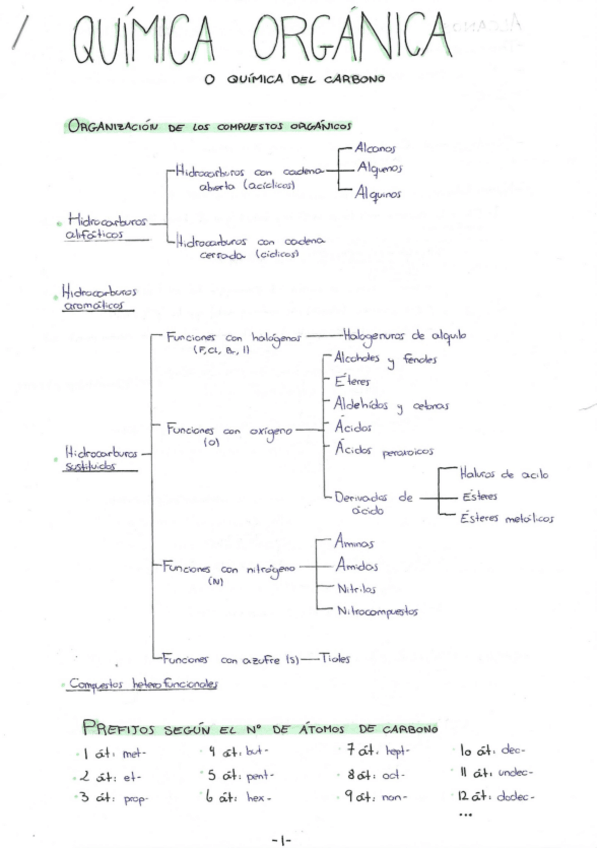 QUÍMICA ORGÁNICA
O QUÍMICA DEL CARBONO
ORGANIZACIÓN DE LOS COMPUESTOS ORGÁNICOS
Hidrocarburos alifáticos
Hidrocarburos con cadena
abierta (acíclicos)
Alcanos
Alquenos
Alquinos
Hidrocarburos con cadena
cerrada (cíclicos)
Hidrocarburos
aromáticos
Hidrocarburos
sustituidos
Funciones con halógenos
(F, Cl, Br, I)
Halogenuros de alquilo
Funciones con oxígeno
(O)
Alcoholes y fenoles
Éteres
Aldehídos y cetonas
Ácidos
Ácidos peroxoicos
Derivados de
ácido
Haluros de acilo
Ésteres
Ésteres metálicos
Funciones con nitrógeno
(N)
Aminas
Amidas
Nitrilos
Nitrocompuestos
Funciones con azufre (S)
Tioles
Compuestos heterofuncionales
PREFIJOS SEGÚN EL Nº DE ÁTOMOS DE CARBONO
1 át: met- 4 át: but- 7 át: hept- 10 át: dec-
2 át: et- 5 át: pent- 8 át: oct- 11 át: undec-
3 át: prop- 6 át: hex- 9 át: non- 12 át: dodec-
...
-1-